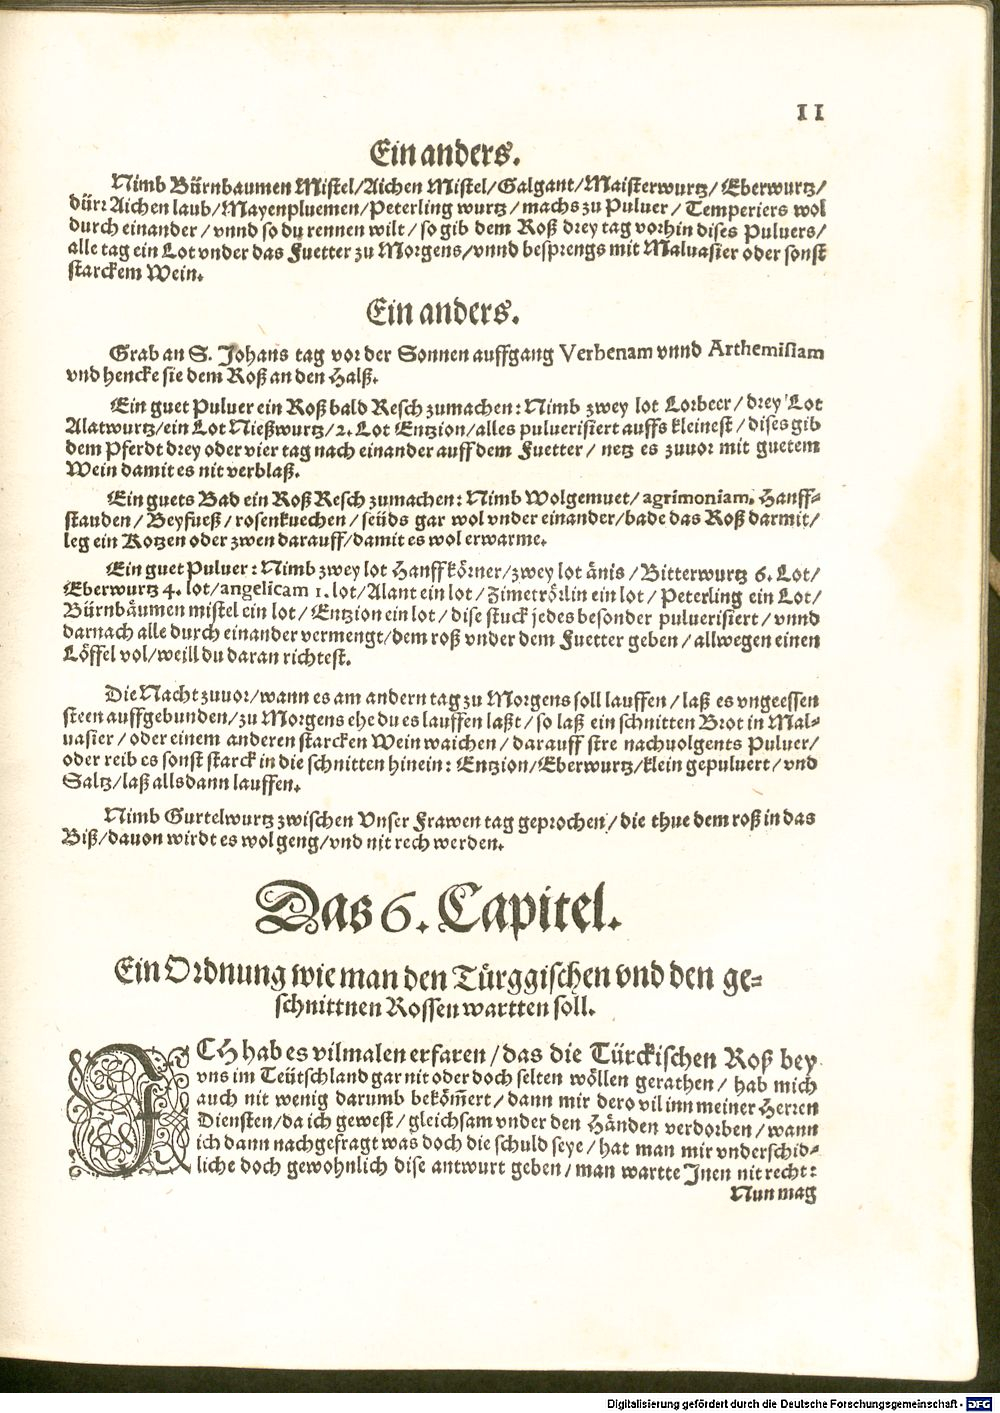 11
Ein anders.
Nimb Bürnbaumen Mistel/Aichen Mistel/Galgant/Maisterwurtz/ Eberwurtz/
dürr Aichen laub/Mayenpluemen/Peterling wurtz / machs zu Puluer / Temperiers wol
durch einander / vnnd so du rennen wilt / so gib dem Roß drey tag vorhin dises Puluers/
alle tag ein Lot vnder das Fuetter zu Morgens/vnnd besprengs mit Maluasier oder sonst
starckem Wein.
Ein anders.
Grab an S. Johans tag vor der Sonnen auffgang Verbenam vnnd Arthemisiam
vnd hencke sie dem Roß an den Halß.
Ein guet Puluer ein Roß bald Resch zumachen: Nimb zwey lot Lorbeer / drey Lot
Alatwurtz/ein Lot Nießwurtz/2. Lot Entzion/alles puluerisiert auffs kleinest / dises gib
dem Pferdt drey oder vier tag nach einander auff dem Fuetter / netz es zuuor mit guetem
Wein damit es nit verblaß.
Ein guets Bad ein Roß Resch zumachen: Nimb Wolgemuet/ agrimoniam. Hanff-
stauden / Beyfueß / rosenkuechen / seüds gar wol vnder einander/bade das Roß darmit/
leg ein Kotzen oder zwen darauff/damit es wol erwarme.
Ein guet Puluer: Nimb zwey lot Hanffkörner/zwey lot änis / Bitterwurtz 6. Lot/
Eberwurtz 4. lot/angelicam 1. lot/Alant ein lot / Zimetrörlin ein lot / Peterling ein Lot/
Bürnbäumen mistel ein lot / Entzion ein lot / dise stuck jedes besonder puluerisiert / vnnd
darnach alle durch einander vermengt/dem roß vnder dem Fuetter geben / allwegen einen
Löffel vol/weill du daran richtest.
Die Nacht zuuor/wann es am andern tag zu Morgens soll lauffen / laß es vngeessen
steen auffgebunden/zu Morgens ehe du es lauffen laßt / so laß ein schnitten Brot in Mal-
uasier / oder einem anderen starcken Wein waichen / darauff stre nachuolgents Puluer/
oder reib es sonst starck in die schnitten hinein: Entzion/Eberwurtz/klein gepuluert / vnd
Saltz/laß allsdann lauffen.
Nimb Gurtelwurtz zwischen Vnser Frawen tag geprochen / die thue dem roß in das
Biß/dauon wirdt es wol geng/vnd nit rech werden.
Das 6. Capitel.
Ein Ordnung wie man den Türggischen vnd den ge-
schnittnen Rossen wartten soll.
ICH hab es vilmalen erfaren / das die Türckischen Roß bey
vns im Teütschland gar nit oder doch selten wöllen gerathen / hab mich
auch nit wenig darumb bekömert / dann mir dero vil inn meiner Herren
Diensten/da ich gewest / gleichsam vnder den Händen verdorben / wann
ich dann nachgefragt was doch die schuld seye / hat man mir vnderschid-
liche doch gewohnlich dise antwurt geben / man wartte Jnen nit recht:
Nun mag
Digitalisierung gefördert durch die Deutsche Forschungsgemeinschaft - DFG